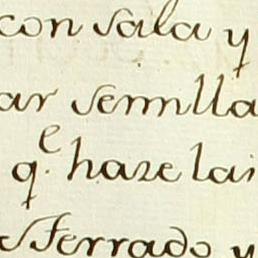 con sala y
ar semilla
q.e haze lai
Ferrado y